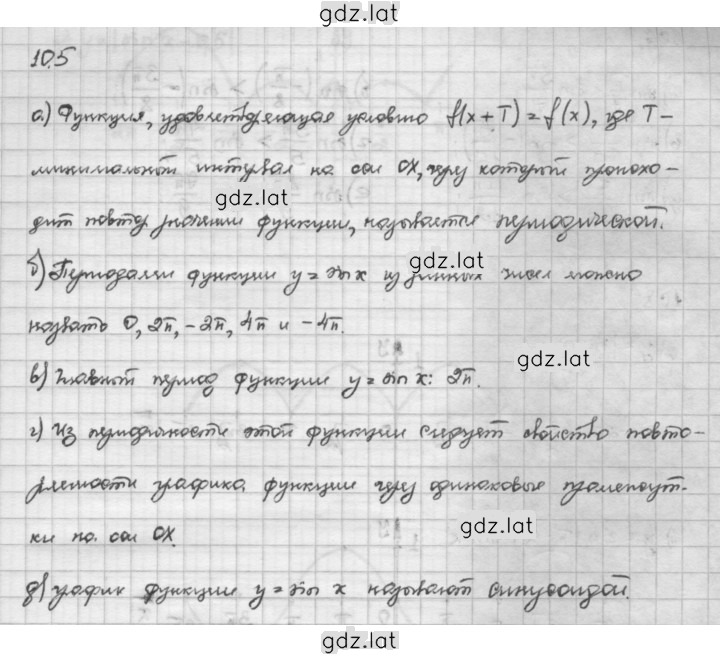 gdz.lat
10.5
а) Функция, удовлетворяющая условию f(x+T)=f(x), где T-
минимальный интервал на оси OX, через который происхо-
gdz.lat
дит повтор значений функции, называется периодической.
gdz.lat
б) Периодами функции y = sin x из данных чисел можно
назвать 0, 2π, -2π, 4π и -4π.
gdz.lat
в) Главный период функции y = sin x: 2π.
г) Из периодичности этой функции следует свойство повто-
ряемости графика функции через одинаковые промежут-
gdz.lat
ки по оси OX.
д) график функции y = sin x называют синусоидой.
gdz.lat